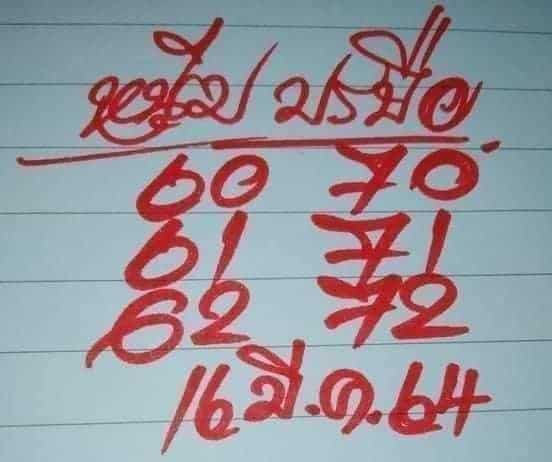 หนุ่ม บรบือ
60 70
61 71
62 72
16 มี.ค.64